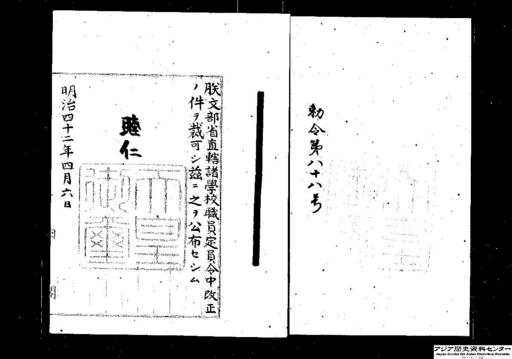 勅令第八十八号
朕文部省直轄諸學校職員定員令中改正
ノ件ヲ裁可シ茲ニ之ヲ公布セシム
睦仁
天皇
御璽
明治四十二年四月六日
内閣
アジア歴史資料センター
Japan Center for Asian Historical Records